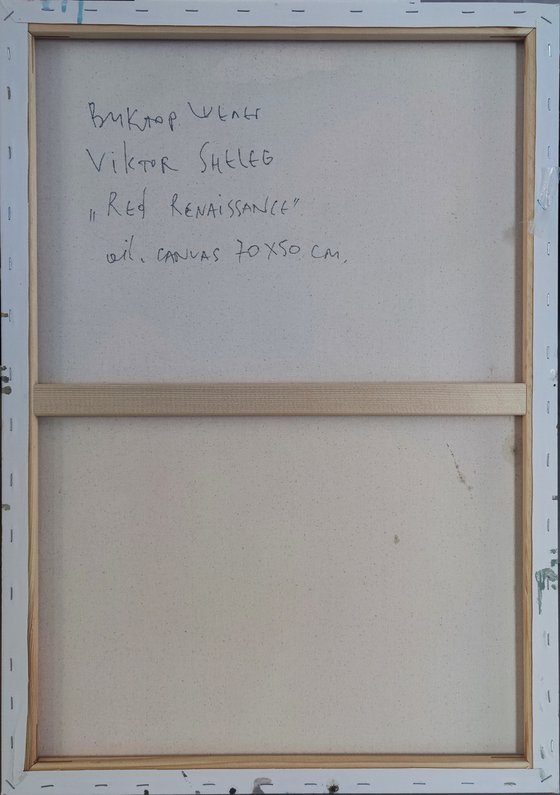 Виктор Шелег
Viktor SHELEG
„Red RENAISSANCE"
oil. CANVAS 70X50 cm.